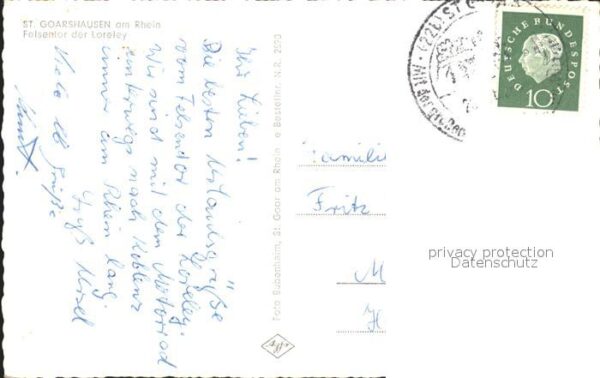 ST. GOARSHAUSEN am Rhein
Felsentor der Loreley
Ihr Lieben!
Die besten Urlaubsgrüße
vom Felsentor der Loreley.
Wir sind mit dem Motorrad
unterwegs nach Koblenz
immer am Rhein lang.
Gruß
Viele Grüße
Foto Bubenheim, St. Goar am Rhein
N.R. 2290
Familie
Fritz
M
H
DEUTSCHE BUNDESPOST
10
privacy protection
Datenschutz